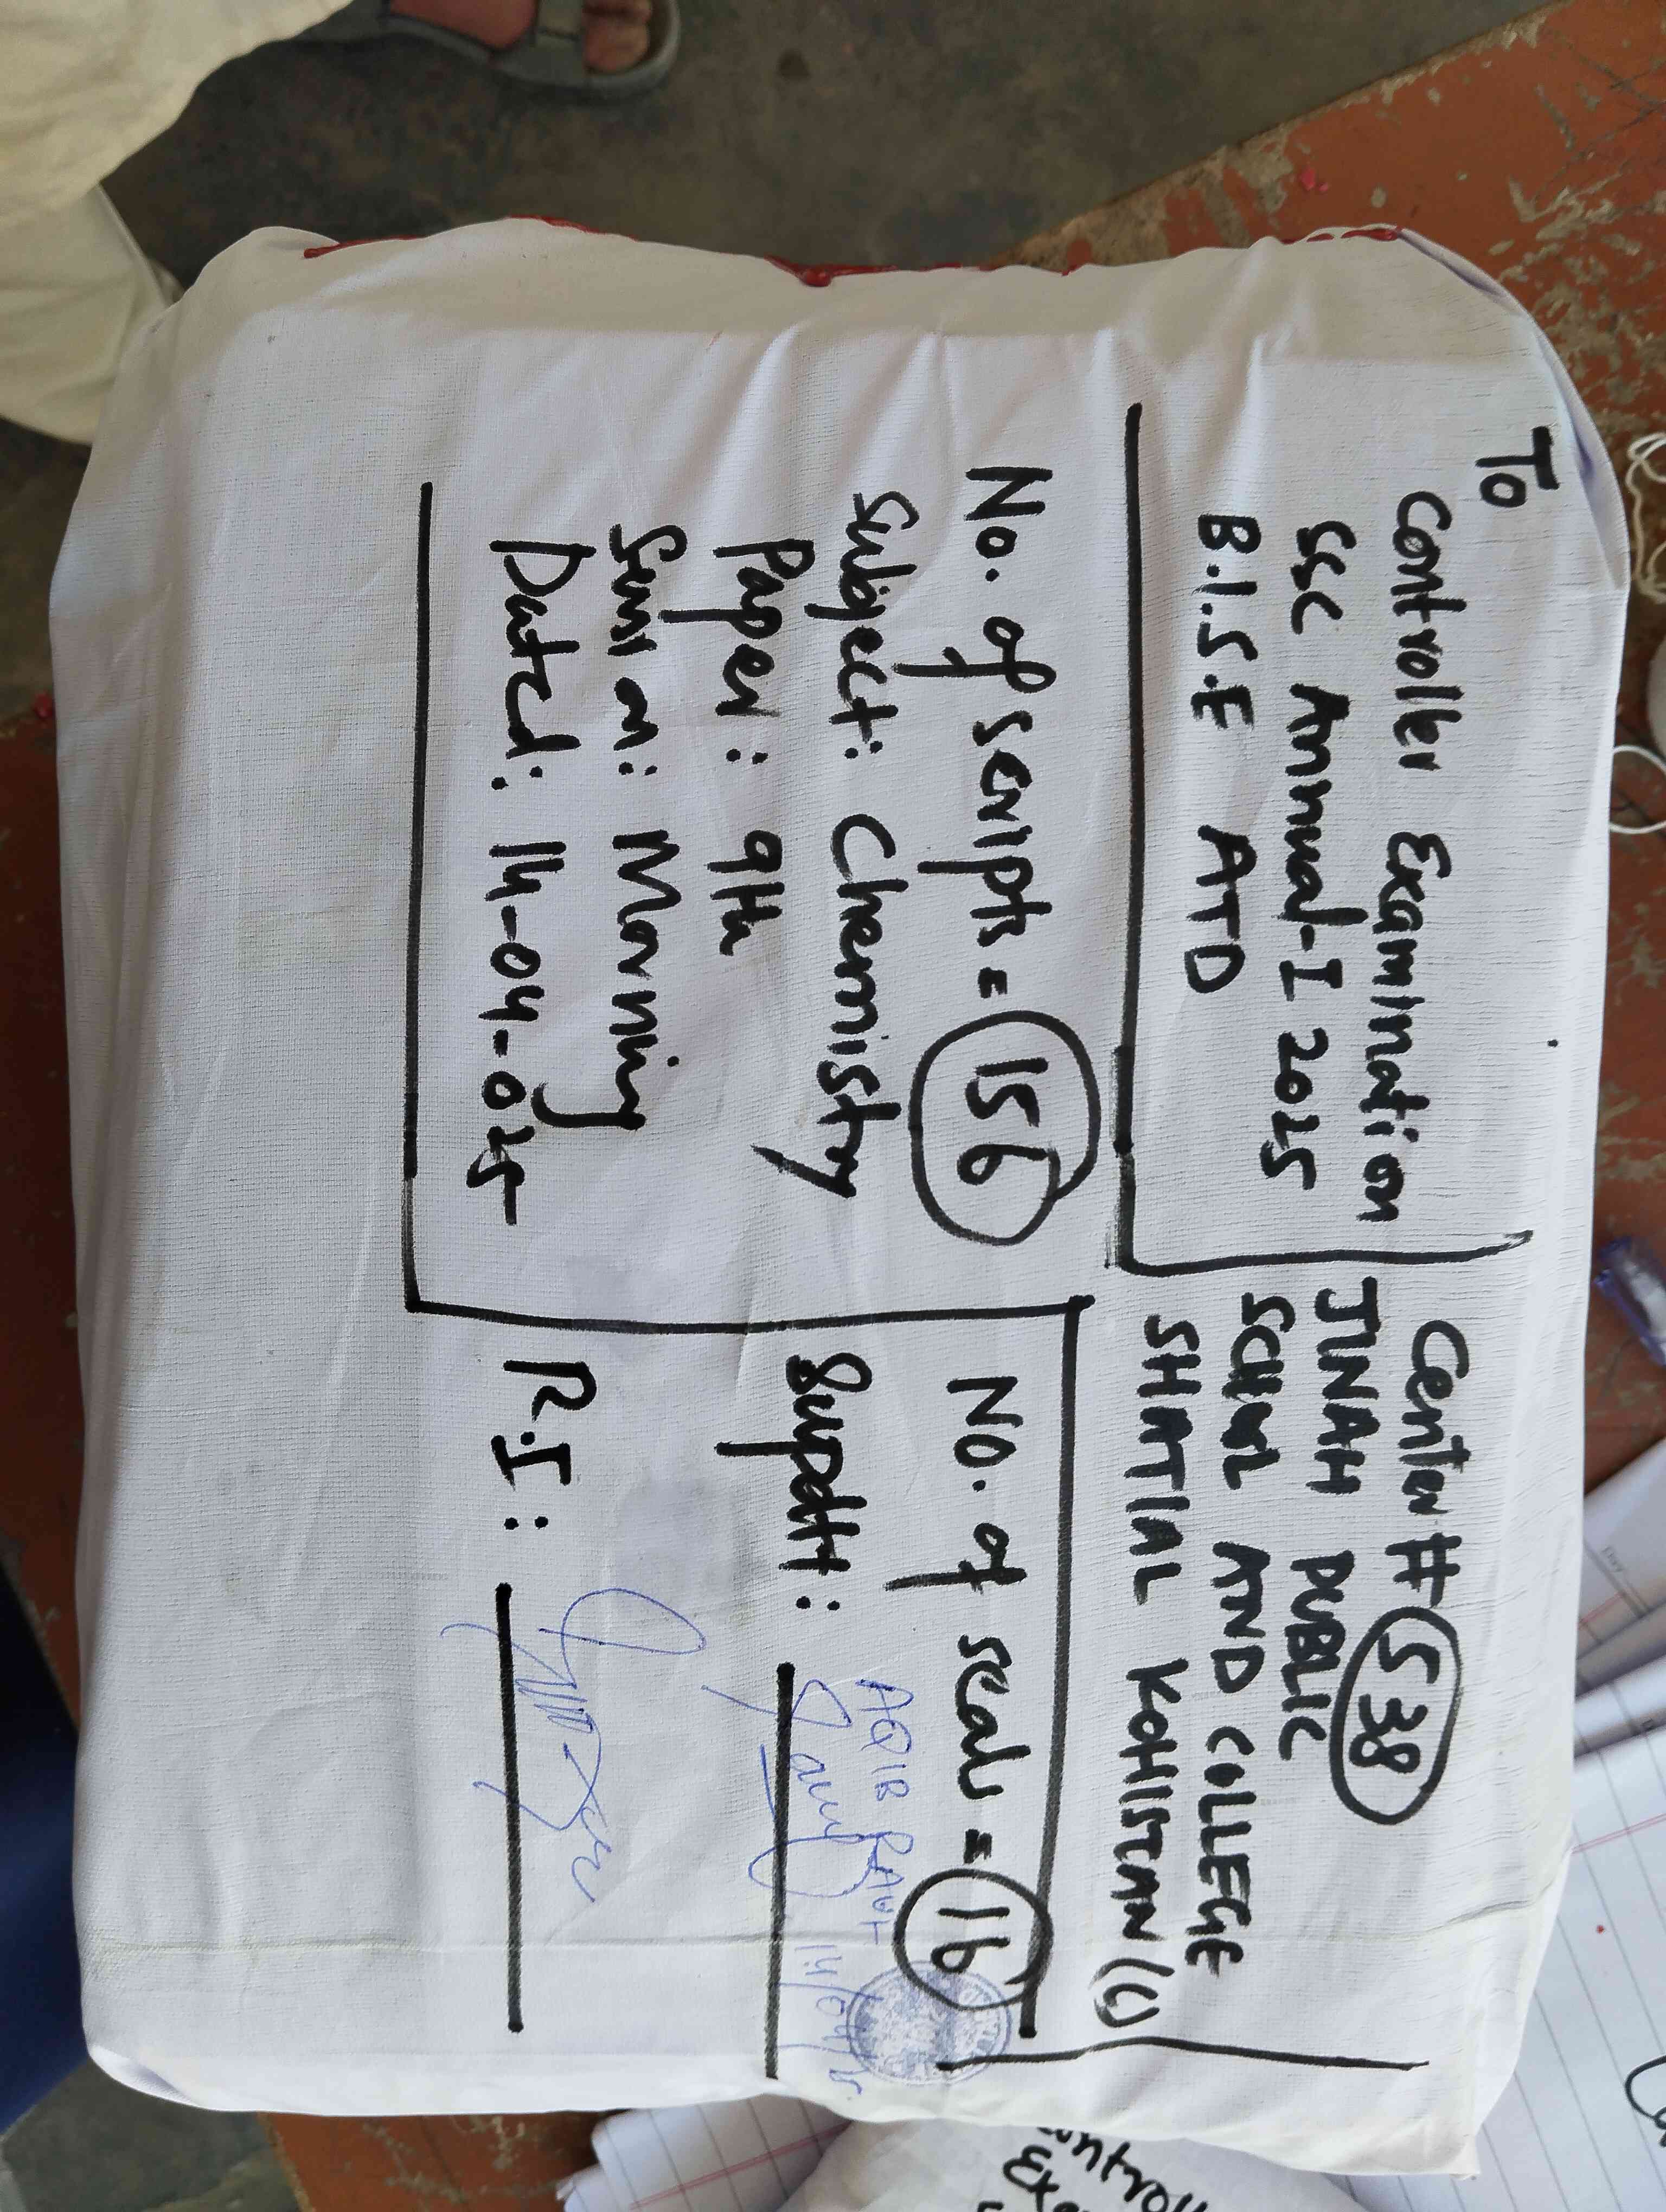 To
Controller Examination
SSC Annual-I 2025
B.I.S.E ATD
Center # 538
JINAH PUBLIC
SCHOOL AND COLLEGE
SHATIAL KOHISTAN (U)
No. of scripts = 156
Subject: Chemistry
Paper: 9th
Session: Morning
Dated: 14-04-025
No. of seals = 16
Supdtt:
AQIB
14/04/25
R.I: